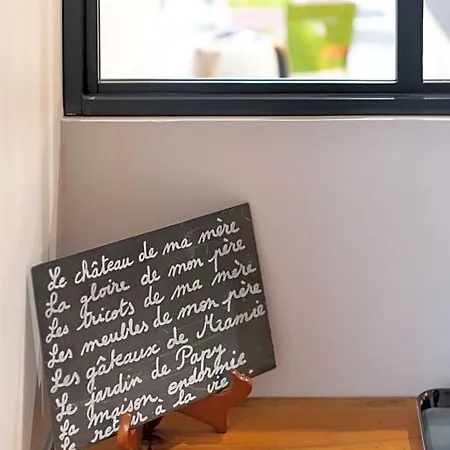 Le château de ma mère
La gloire de mon père
Les tricots de ma mère
Les meubles de mon père
Les gâteaux de Mamie
Le jardin de Papy
La maison endormie
retour à la vie.